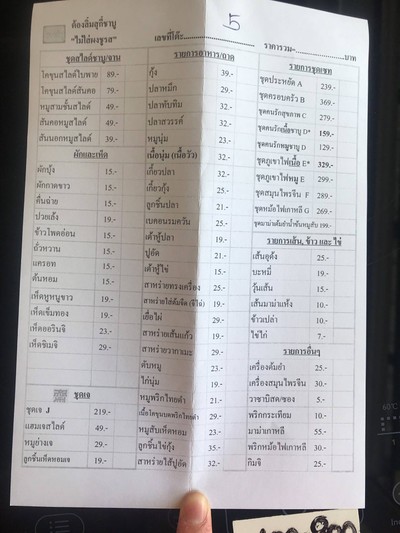 ต้องลิ้มสุกี้ชาบู
"ไม่ใส่ผงชูรส"
เลขที่โต๊ะ
5
ราคารวม=
บาท
ชุดสไลด์ชาบู/จาน
โคขุนสไลด์ใบพาย 89.-
โคขุนสไลด์สันคอ 79.-
หมูสามชั้นสไลด์ 49.-
สันคอหมูสไลด์ 49.-
สันนอกหมูสไลด์ 39.-
ผักและเห็ด
ผักบุ้ง 15.-
ผักกาดขาว 15.-
ตั้นฉ่าย 15.-
ปวยเล้ง 19.-
ข้าวโพดอ่อน 15.-
ถั่วหวาน 15.-
แครอท 15.-
ต้นหอม 15.-
เห็ดหูหนูขาว 19.-
เห็ดเข็มทอง 19.-
เห็ดออรินจิ 23.-
เห็ดชิเมจิ 29.-
ชุดเจ
ชุดเจ J 219.-
แฮมเจสไลด์ 49.-
หมูย่างเจ 29.-
ลูกชิ้นเห็ดหอมเจ 19.-
รายการอาหาร/ถาด
กุ้ง 39.-
ปลาหมึก 29.-
ปลาทับทิม 32.-
ปลาสวรรค์ 32.-
หมูนุ่ม
เนื้อนุ่ม (เนื้อวัว) 32.-
เกี้ยวปลา 32.-
เกี้ยวกุ้ง 25.-
ลูกชิ้นปลา 21.-
เบคอนรมควัน 25.-
เต้าหู้ปลา 19.-
ปูอัด 21.-
เต้าหู้ไข่ 15.-
สาหร่ายทรงเครื่อง 25.-
สาหร่ายใส่ต้มจืด (จีฉ่าย) 19.-
เยื่อไผ่ 29.-
สาหร่ายเส้นแก้ว 19.-
สาหร่ายวากาเมะ 29.-
ตับหมู 23.-
ไก่นุ่ม 19.-
หมูพริกไทยดำ 29.-
เนื้อโคขุนบดพริกไทยดำ 29.-
หมูสับเห็ดหอม 23.-
ลูกชิ้นไข่กุ้ง 35.-
สาหร่ายไส้ปูอัด 32.-
รายการชุดเซท
ชุดประหยัด A 239.-
ชุดครอบครัว B 369.-
ชุดคนรักสุขภาพ C 279.-
ชุดคนรักเนื้อชาบู D* 159.-
ชุดคนรักหมูชาบู D 129.-
ชุดภูเขาไฟเนื้อ E* 329.-
ชุดภูเขาไฟหมู E 299.-
ชุดสมุนไพรจีน F 289.-
ชุดหม้อไฟเกาหลี G 269.-
รายการเส้น, ข้าว และ ไข่
เส้นอุด้ง 25.-
บะหมี่ 19.-
วุ้นเส้น 15.-
เส้นมาม่าแห้ง 10.-
ข้าวเปล่า 10.-
ไข่ไก่ 7.-
รายการอื่นๆ
เครื่องต้มยำ 25.-
เครื่องสมุนไพรจีน 30.-
วาซาบิสด/ซอง 5.-
พริกกระเทียม 10.-
มาม่าเกาหลี 55.-
พริกหม้อไฟเกาหลี 30.-
กิมจิ 25.-